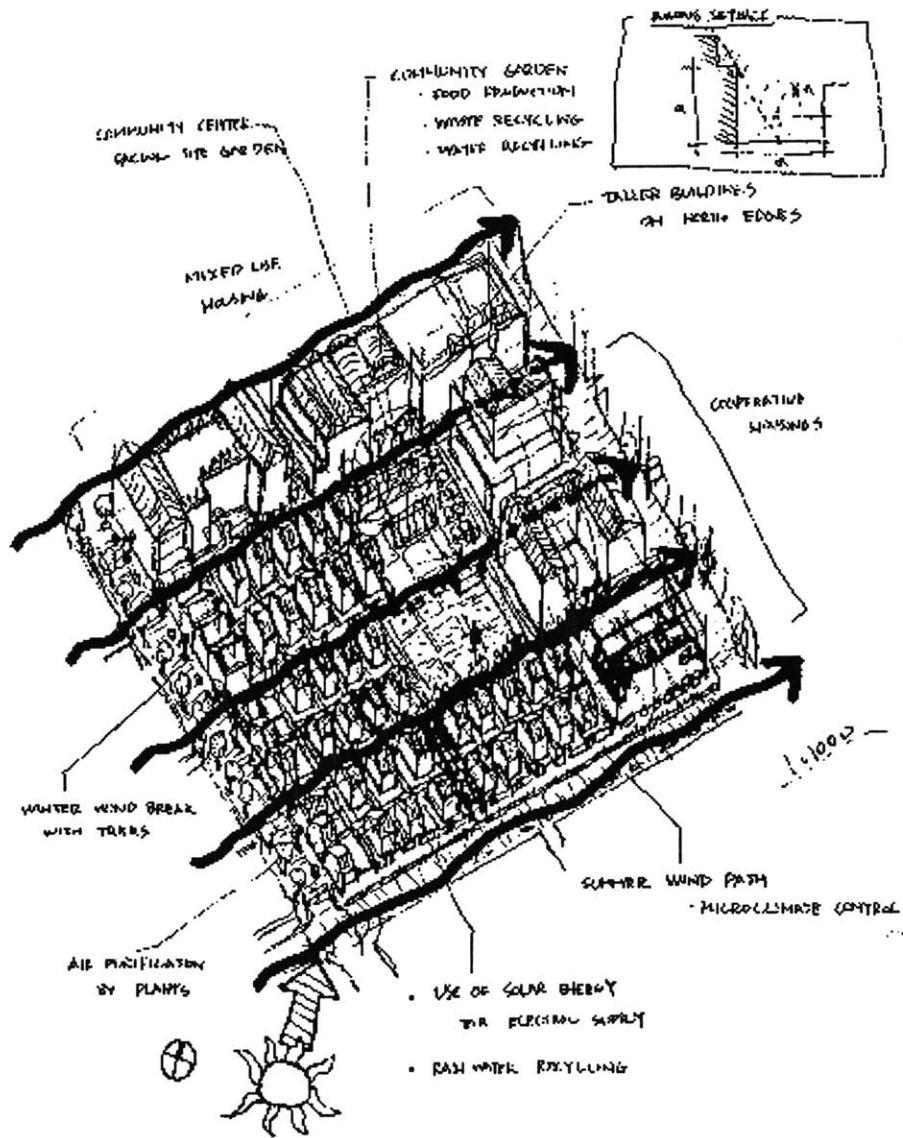 COMMUNITY GARDEN
· FOOD PRODUCTION
· WASTE RECYCLING
· WATER RECYCLING
COMMUNITY CENTER
FACING SITE GARDEN
TALLER BUILDINGS
ON NORTH EDGES
MIXED USE
HOUSING
COOPERATIVE
HOUSINGS
1:1000
WINTER WIND BREAK
WITH TREES
SUMMER WIND PATH
· MICROCLIMATE CONTROL
AIR PURIFICATION
BY PLANTS
· USE OF SOLAR ENERGY
FOR ELECTRON SUPPLY
· RAIN WATER RECYCLING